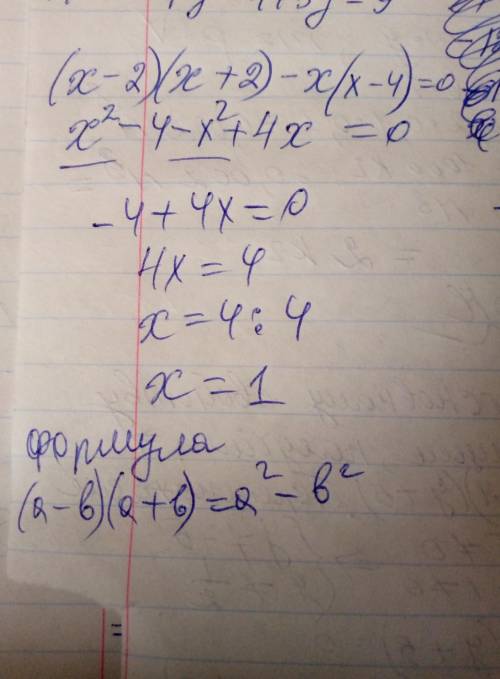 (x-2)(x+2)-x(x-4)=0
x²-4-x²+4x=0
-4+4x=0
4x=4
x=4:4
x=1
формула
(а-в)(а+в)=а²-в²
=